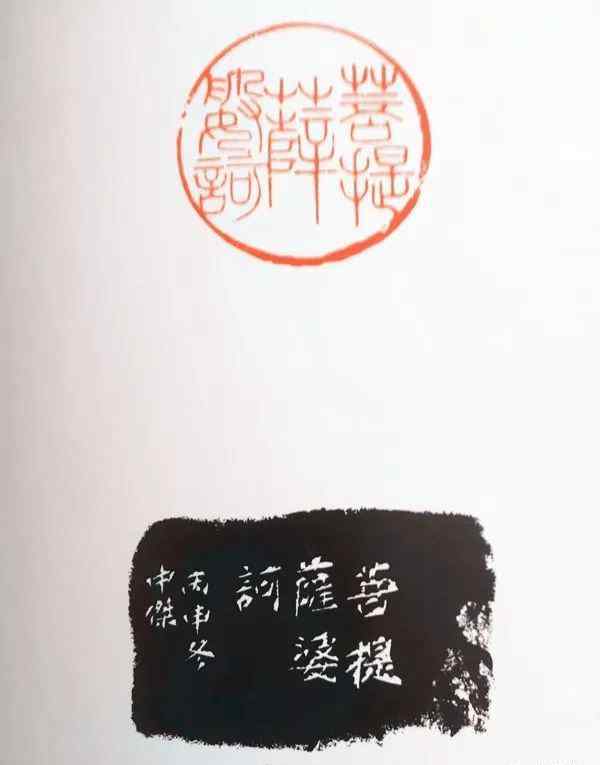 菩提
薩
婆訶
菩提
薩婆
訶
丙申冬
中傑